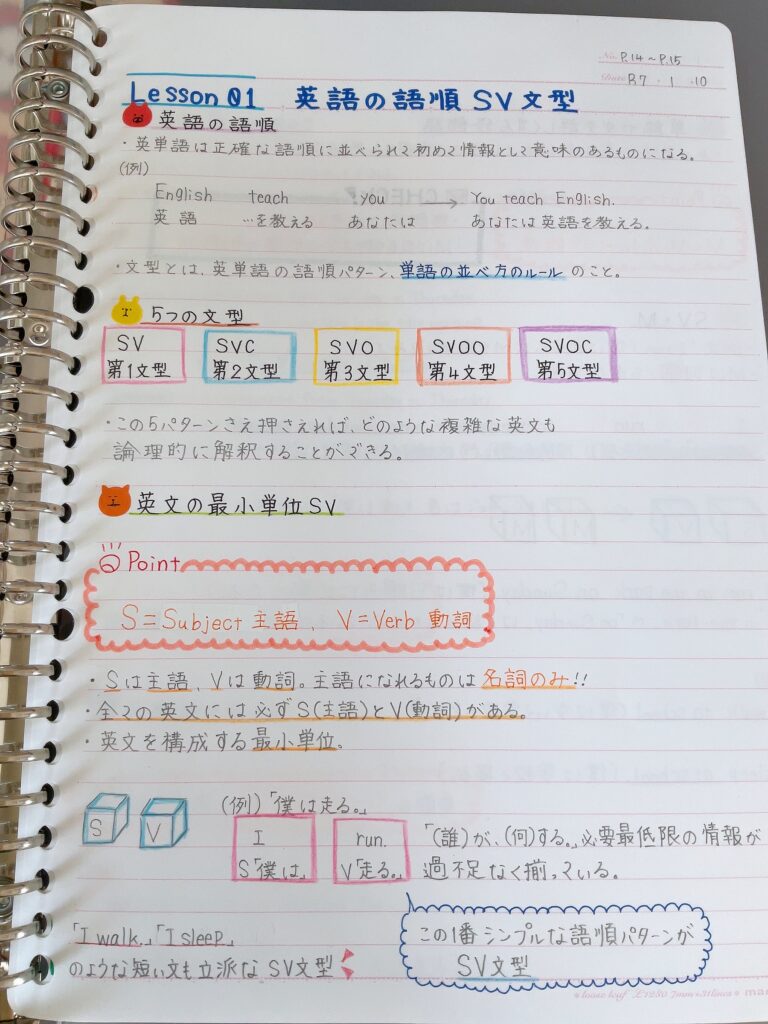 No. P.14～P.15
Date R7・1・10
Lesson 01　英語の語順 SV文型
英語の語順
・英単語は正確な語順に並べられて初めて情報として意味のあるものになる。
(例)
English　teach　you　→　You teach English.
英語　…を教える　あなたは　あなたは英語を教える.
・文型とは、英単語の語順パターン、単語の並べ方のルールのこと。
5つの文型
SV　SVC　SVO　SVOO　SVOC
第1文型　第2文型　第3文型　第4文型　第5文型
・この5パターンさえ押さえれば、どのような複雑な英文も
論理的に解釈することができる。
英文の最小単位SV
Point
S=Subject 主語、V=Verb 動詞
・Sは主語、Vは動詞。主語になれるものは名詞のみ!!
・全ての英文には必ずS(主語)とV(動詞)がある。
・英文を構成する最小単位。
(例)「僕は走る。」
S　V　I　run.　「(誰)が、(何)する。」必要最低限の情報が
S「僕は」　V「走る。」　過不足なく揃っている。
「I walk.」「I sleep.」
のような短い文も立派なSV文型
この1番シンプルな語順パターンが
SV文型
loose leaf